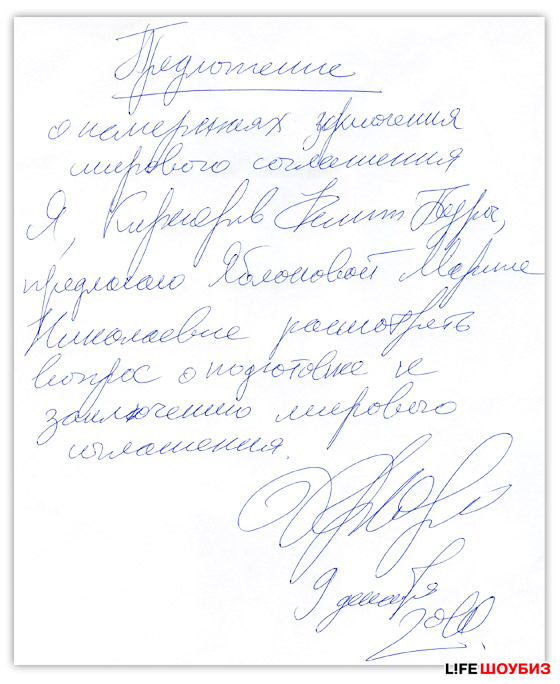 Предложение
о намерениях заключения
мирового соглашения
Я, Киркоров Филипп Бедрос,
предлагаю Яблоковой Марине
Николаевне рассмотреть
вопрос о подготовке к
заключению мирового
соглашения.
9 декабря
2010.
L!FE ШОУБИЗ